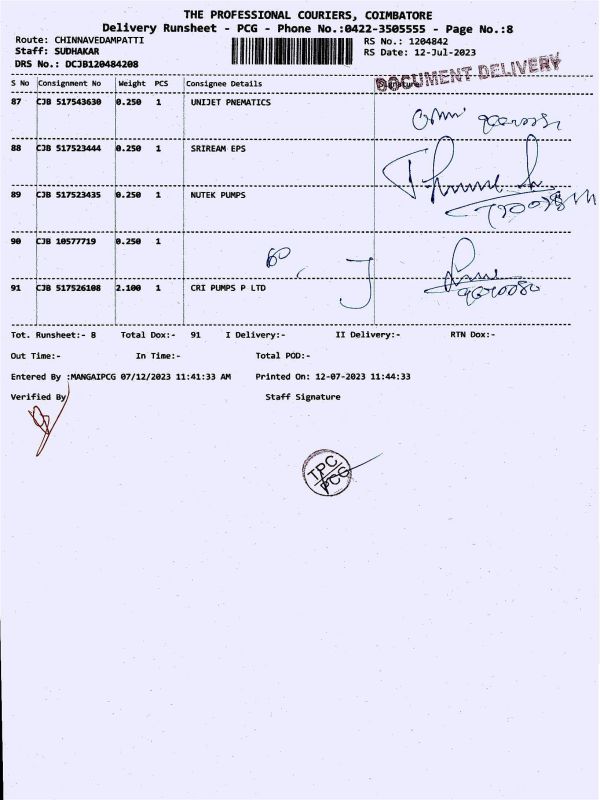 THE PROFESSIONAL COURIERS, COIMBATORE
Delivery Runsheet - PCG - Phone No.:0422-3505555 - Page No.:8
Route: CHINNAVEDAMPATTI
RS No.: 1204842
Staff: SUDHAKAR
RS Date: 12-Jul-2023
DRS No.: DCJB120484208
DOCUMENT DELIVERY
S No Consignment No Weight PCS Consignee Details
87 CJB 517543630 0.250 1 UNIJET PNEMATICS
88 CJB 517523444 0.250 1 SRIREAM EPS
89 CJB 517523435 0.250 1 NUTEK PUMPS
90 CJB 10577719 0.250 1
91 CJB 517526108 2.100 1 CRI PUMPS P LTD
Tot. Runsheet:- 8 Total Dox:- 91 I Delivery:- II Delivery:- RTN Dox:-
Out Time:- In Time:- Total POD:-
Entered By :MANGAIPCG 07/12/2023 11:41:33 AM Printed On: 12-07-2023 11:44:33
Verified By Staff Signature
TPC
PCG